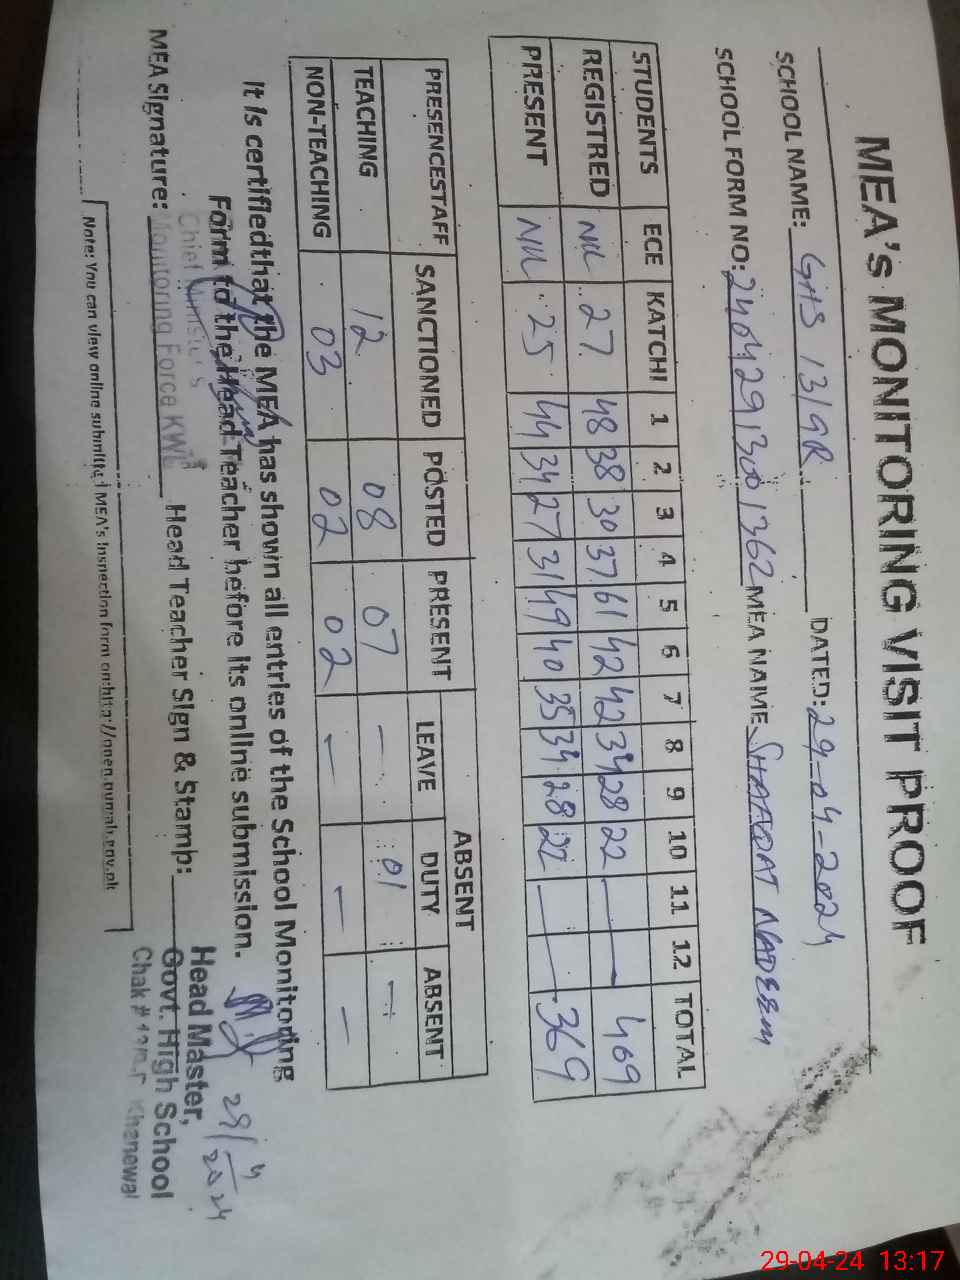 MEA's MONITORING VISIT PROOF
SCHOOL NAME: GHS 13/9R DATED: 29-04-2024
SCHOOL FORM NO: 24042913001362 MEA NAME SHAFAQAT NADEEM
STUDENTS ECE KATCHI 1 2 3 4 5 6 7 8 9 10 11 12 TOTAL
REGISTRED Nil 27 48 38 30 37 61 42 42 34 28 22 — — 409
PRESENT Nil 25 44 34 27 31 49 40 35 34 28 22 — — 369
ABSENT
PRESENCESTAFF SANCTIONED POSTED PRESENT LEAVE DUTY ABSENT
TEACHING 12 08 07 — 01 —
NON-TEACHING 03 02 02 — — —
It is certifiedthat the MEA has shown all entries of the School Monitoring
Form to the Head Teacher before its online submission.
29/4/2024
MEA Signature: Head Teacher Sign & Stamp:
Chief Minister's
Monitoring Force KWL
Head Master,
Govt. High School
Chak # Khanewal
Note: You can view online submitted MEA's Inspection form on:http://open.punjab.gov.pk
29-04-24 13:17